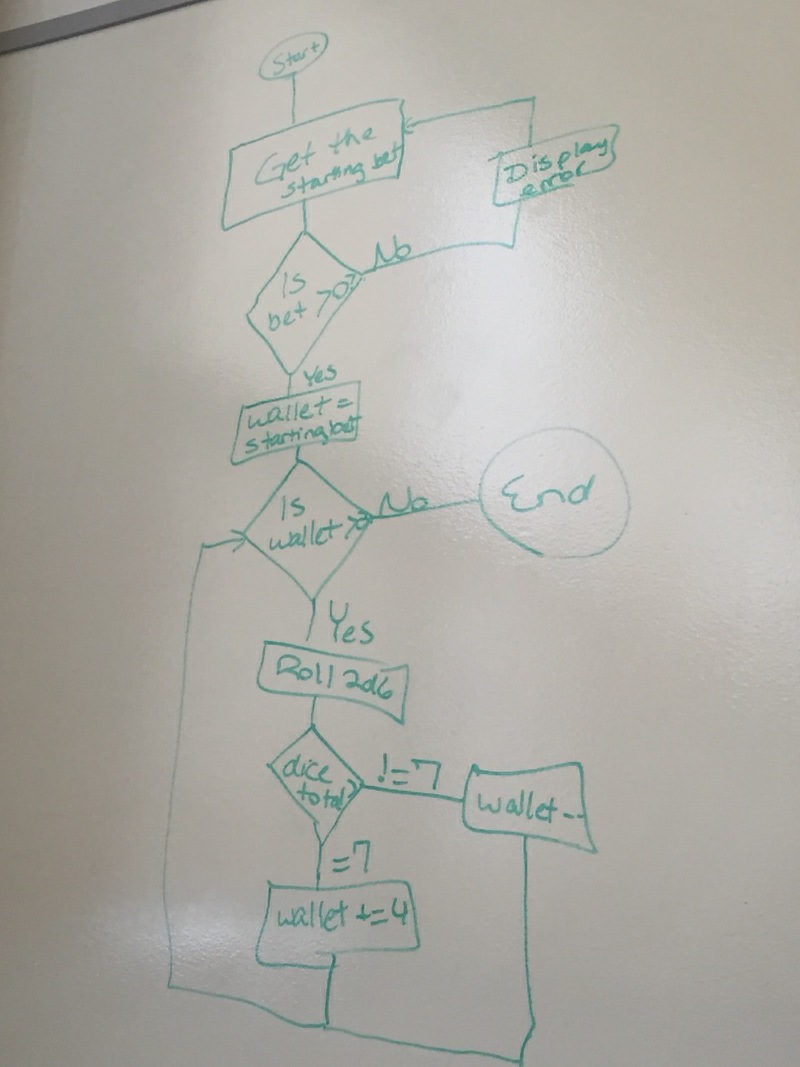 Start
Get the
starting bet
Display
error
No
Is
bet >0?
Yes
wallet =
starting bet
Is
wallet >0?
No
End
Yes
Roll 2d6
dice
total?
!=7
wallet --
=7
wallet +=4